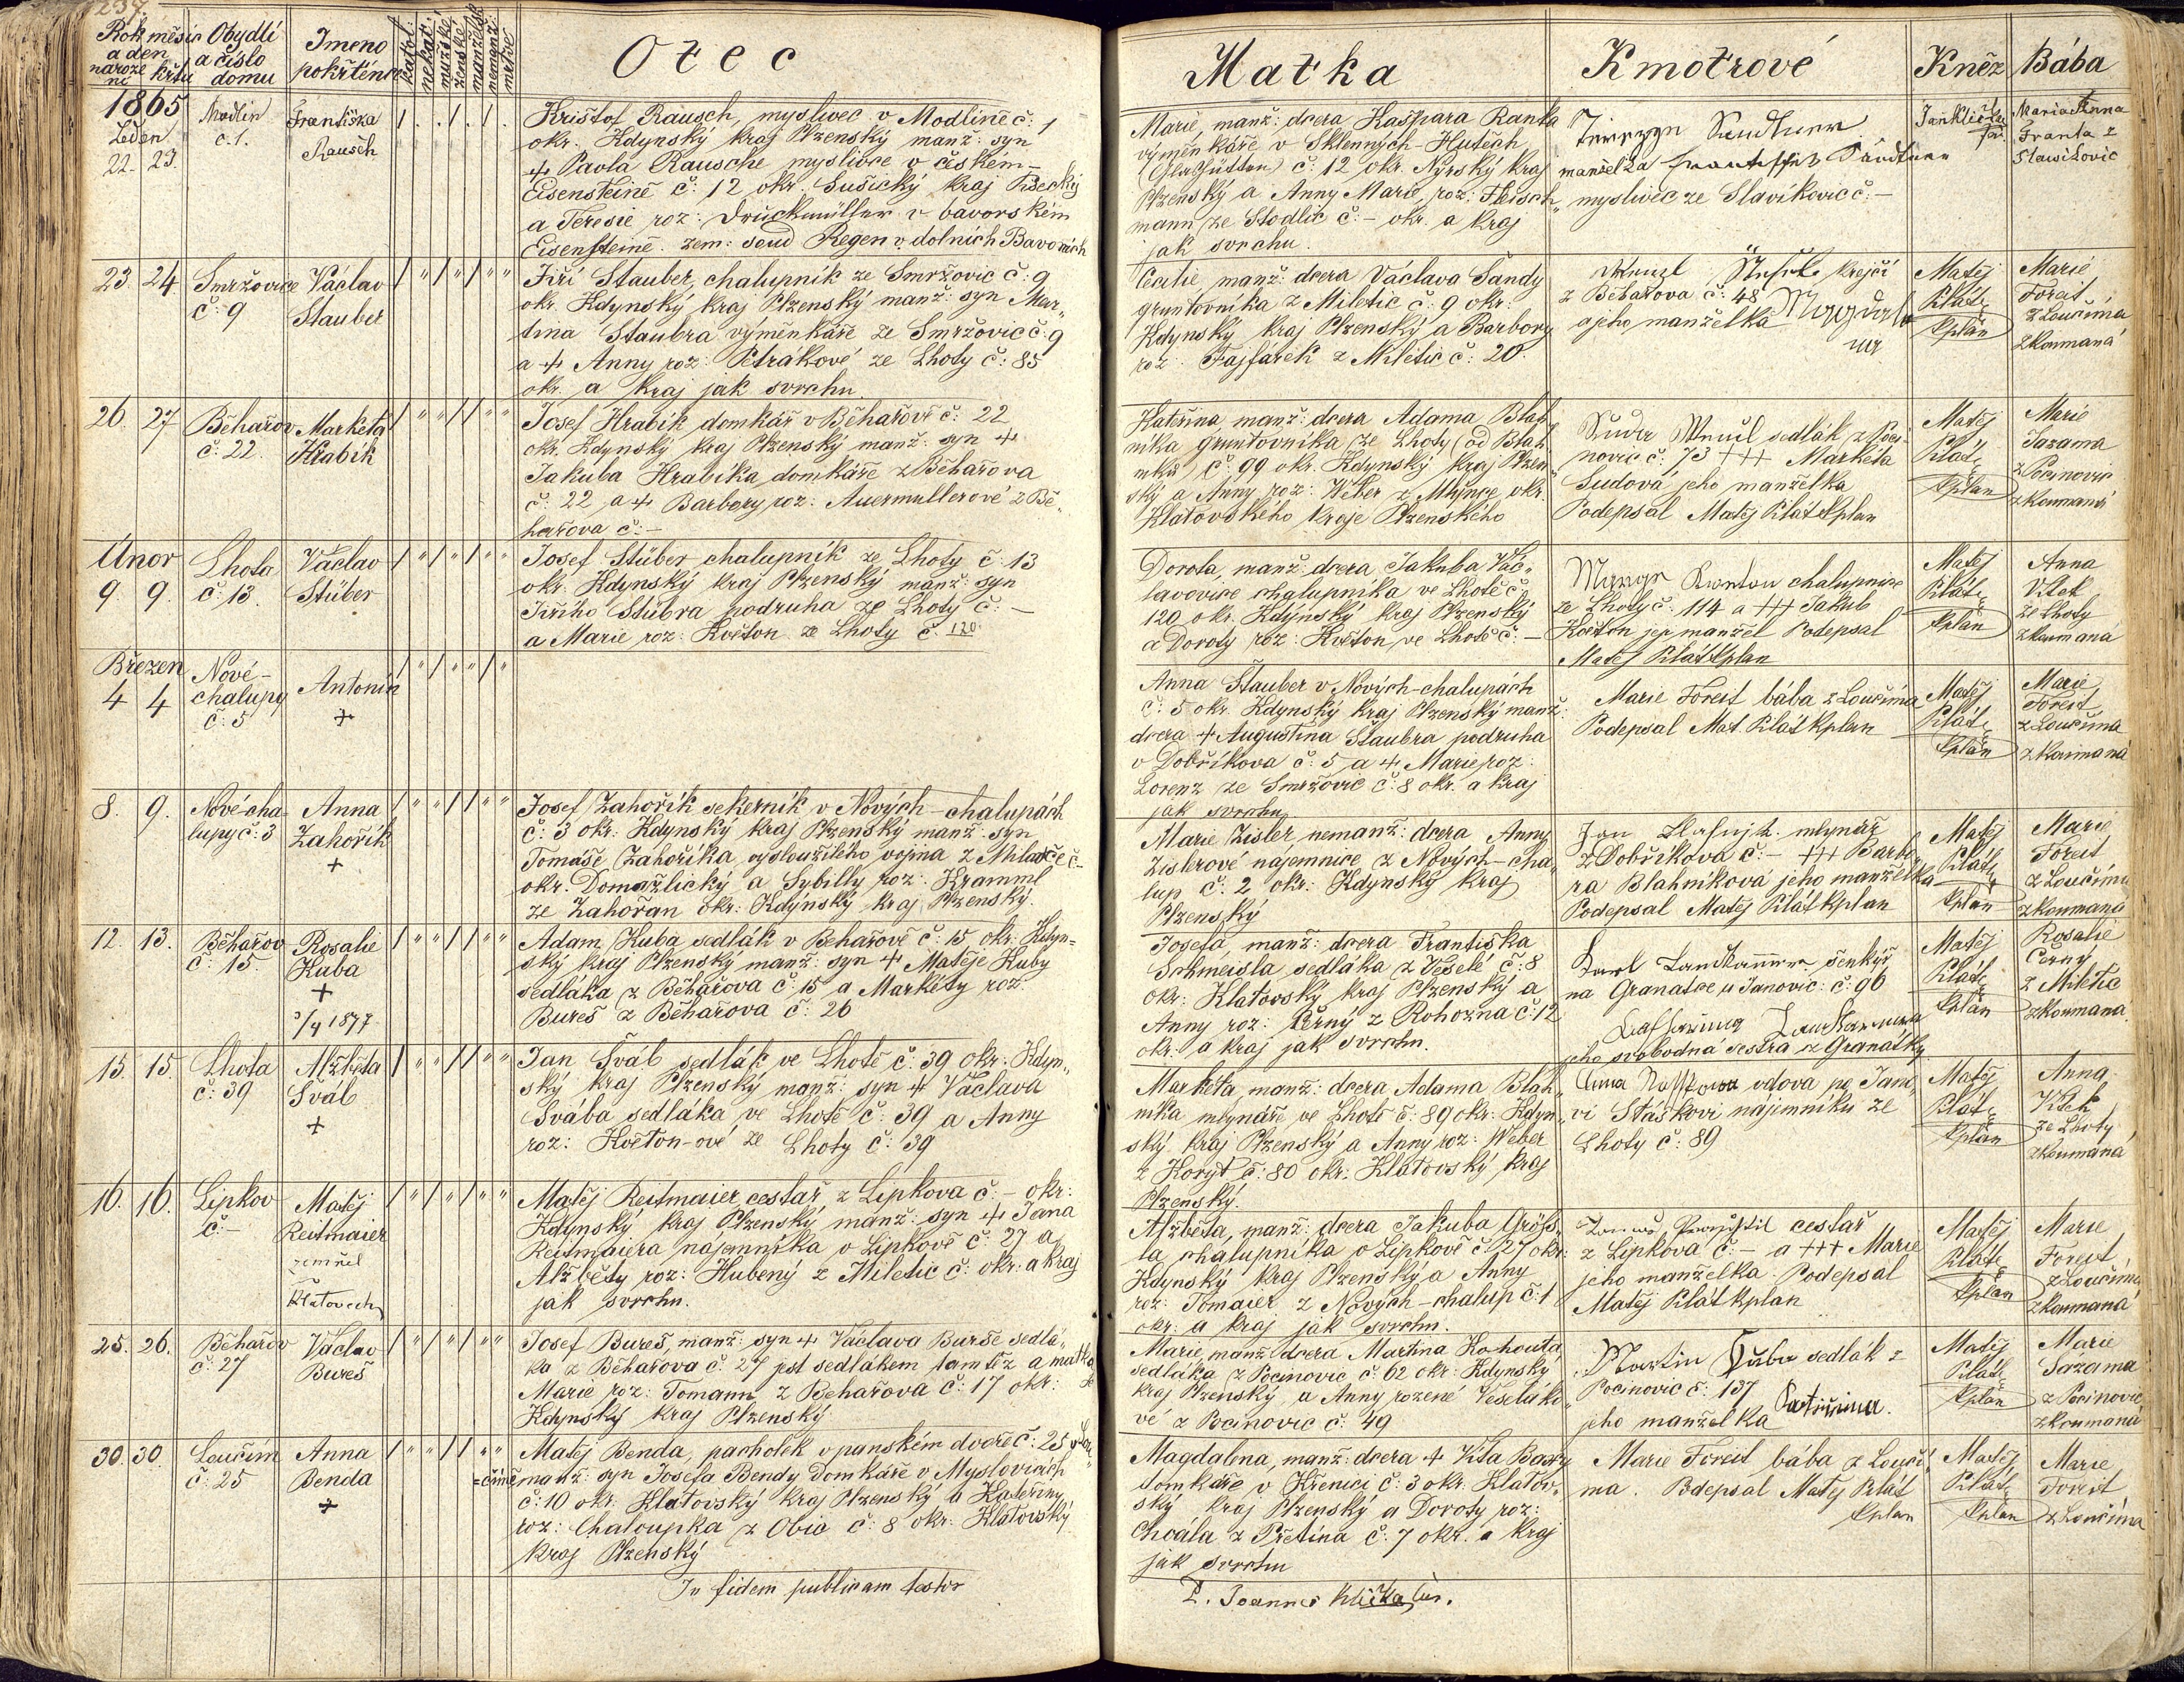 237.
Rok měsíc
a den
naroze
ní
křtu
Obydlí
a číslo
domu
Imeno
pokřtěnce
katol:
nekat:
mužské
ženské
manželsk
nemanž:
mrtvé
Otec
Matka
Kmotrové
Kněz
Bába
1865
Leden
22. 23.
Modlin
č. 1.
Františka
Rausch
Krištof Rausch, myslivec v Modlíně č: 1
okr. Kdynský kraj Plzenský manž: syn
+ Pavla Rausche myslivce v českém-
Eisensteině č: 12 okr. Sušický kraj Písecký
a Teresie roz: Druckmüller v bavorském
Eisensteině. zem: soud Regen v dolních Bavorích
Marie, manž: dcera Kašpara Ranka
výměnkáře v Sklenných-Hutěch
(Glashütten) č: 12 okr. Nyrský kraj
Plzenský a Anny Marie, roz: Fleisch„
mann ze Stodlic č:- okr. a kraj
jak svrchu.
manželka
myslivec ze Slavíkovic č:-
Jan Klička
far.
Maria Anna
Franta z
Slawikovic
23. 24.
Smržovice
č: 9
Václav
Stauber
Jiří Stauber, chalupník ze Smržovic č: 9
okr. Kdynský kraj Plzenský manž: syn Mar„
tina Staubra výměnkáře ze Smržovic č: 9
a + Anny roz: Petrákové ze Lhoty č: 85
okr. a kraj jak svrchu.
Cecilie, manž: dcera Václava Šandy
gruntovníka z Miletic č: 9 okr.
Kdynský kraj Plzenský a Barbory
roz: Fajfárek z Miletic č: 20
Wenzl krejčí
z Běhařova č: 48
a jeho manželka
Matěj
Klát
kplan
Marie
Foreit
z Loučíma
zkoumaná
26. 27
Běhařov
č: 22.
Markéta
Hrabík
Josef Hrabík domkář v Běhařově č: 22
okr. Kdynský kraj Plzenský manž: syn +
Jakuba Hrabíka domkáře z Běhařova
č: 22 a + Barbory roz: Auermullerové z Bě„
hařova č:-
Kateřina, manž: dcera Adama Blah„
níka gruntovníka ze Lhoty (od Blah
níků) č: 99 okr. Kdynský kraj Plzen„
ský a Anny roz: Weber z Mlýnce okr.
Klatovského kraje Plzenského
sedlák z Poci„
novic č: 73 +++ Markéta
Sudová jeho manželka
Podepsal Matěj Klát kplan
Matěj
Klát
kplan
Marie
Sazama
z Pocinovic
zkoumaná
Únor
9. 9.
Lhota
č: 13.
Václav
Stüber
Josef Stüber chalupník ze Lhoty č: 13
okr. Kdynský kraj Plzenský manž: syn
Jiřího Stübra podruha ze Lhoty č:-
a Marie roz: Květon ze Lhoty č: 120.
Dorota, manž: dcera Jakuba Vác„
lavovice chalupníka ve Lhotě č:
120 okr. Kdýnský kraj Plzenský
a Doroty roz: Květon ve Lhotě č:-
chalupnice
ze Lhoty č: 114 a +++ Jakub
Květon její manžel Podepsal
Matěj Klát kplan
Matěj
Klát
kplan
Anna
Vítek
ze Lhoty
zkoumaná
Březen
4 4
Nové-
chalupy
č: 5
Antonín
+
Anna Stauber v Nových-chalupách
č: 5 okr. Kdynský kraj Plzenský manž:
dcera + Augustina Staubra podruha
v Dobříkova č: 5 a + Marie roz:
Lorenz ze Smržovic č: 8 okr. a kraj
jak svrchu
Marie Foreit bába z Loučíma
Podepsal Mat. Klát kplan
Matěj
Klát
kplan
Marie
Foreit
z Loučíma
zkoumaná
8. 9.
Nové-cha-
lupy č: 3
Anna
Zahořík
+
Josef Zahořík sekerník v Nových-chalupách
č: 3 okr: Kdynský kraj Plzenský manž: syn
Tomáše Zahoříka, vysloužilého vojína z Mlavče č-
okr: Domažlický a Sybilly roz: Kramml
ze Zahořan okr: Kdýnský kraj Plzenský.
Marie Zisler, nemanž: dcera Anny
Zislerové nájemnice z Nových-cha„
lup č: 2 okr. Kdynský kraj
Plzenský
Jan mlynář
z Dobříkova č:- +++ Barbo„
ra Blahníková jeho manželka
Podepsal Matěj Klát kplan
Matěj
Klát
kplan
Marie
Foreit
z Loučíma
zkoumaná
12. 13.
Běhařov
č: 15.
Rosalie
Kuba
+
3/4 1877
Adam Kuba sedlák v Behařově č: 15 okr. Kdyn=
ský kraj Plzenský manž: syn + Matěje Kuby
sedláka z Běhařova č: 15 a Markéty roz:
Bureš z Běhařova č: 26
Josefa, manž: dcera Františka
Schmeisla sedláka z Veselé č: 8
okr: Klatovský kraj Plzenský a
Anny roz: Černý z Rohozna č: 12
okr. a kraj jak svrchu.
Karl šenkýř
na Granátce u Janovic: č: 96
jeho svobodná sestra z Granátky
Matěj
Klát
kplan
Rosalie
Cerny
z Miletic
zkoumaná.
15. 15.
Lhota
č: 39
Alžběta
Šváb
+
Jan Šváb sedlák ve Lhotě č: 39 okr. Kdyn„
ský kraj Plzenský manž: syn + Václava
Švába sedláka ve Lhotě č: 39 a Anny
roz: Květon-ové ze Lhoty č: 39
Markéta, manž: dcera Adama Blah„
níka mlynáře ve Lhotě č: 89 okr: Kdyn„
ský kraj Plzenský a Anny roz: Weber
z Koryt č: 80 okr: Klatovský kraj
Plzenský.
vdova po Jano„
vi Stáškovi nájemníku ze
Lhoty č: 89
Matěj
Klát
kplan
Anna
Vítek
ze Lhoty
zkoumaná
16. 16.
Lipkov
č:-
Matěj
Reitmaier
zemřel
v
Klatovech
Matěj Reitmaier, cestář z Lipkova č:- okr:
Kdynský kraj Plzenský manž: syn + Jana
Reitmaiera nájemníka v Lipkově č: 27 a
Alžběty roz: Hubený z Miletic č: okr: a kraj
jak svrchu.
Alžběta, manž: dcera Jakuba Gröss„
la, chalupníka v Lipkově č: 27 okr:
Kdynský kraj Plzenský a Anny
roz: Tomaier z Nových-chalup č: 1
okr: a kraj jak svrchu.
cestář
z Lipkova č:- a +++ Marie
jeho manželka. Podepsal
Matěj Klát kplan
Matěj
Klát
kplan
Marie
Foreit
z Loučíma
zkoumaná
25. 26.
Běhařov
č: 27
Václav
Bureš
Josef Bureš, manž: syn + Václava Burše sedlá„
ka z Běhařova č: 27 jest sedlákem tamtéž a matka
Marie roz: Tomann z Behařova č: 17 okr:
Kdynský kraj Plzenský.
Marie, manž: dcera Martina Kohouta
sedláka z Pocinovic č: 62 okr. Kdynský
kraj Plzenský a Anny rozené Veselako„
vé z Pocinovic č: 49
Martin Kuba sedlák z
Pocinovic č: 137
jeho manželka Catřina.
Matěj
Klát
kplan
Marie
Sazama
z Pocinovic
zkoumaná
30. 30.
Loučim
č: 25
Anna
Benda
+
Matěj Benda, pacholek v panském dvoře č: 25 v Lou„
=čimě manž: syn Josefa Bendy domkáře v Myslovicích
č: 10 okr. Klatovský kraj Plzenský a Kateřiny
roz: Chaloupka z Obic č: 8 okr. Klatovský
kraj Plzenský
Magdalena, manž: dcera + Víta Baxy
domkáře v Křenici č: 3 okr. Klatov„
ský kraj Plzenský a Doroty roz:
Chvála z Přetína č: 7 okr. a kraj
jak svrchu
Marie Foreit bába z Loučí„
ma. Podepsal Matěj Klát
kplan
Matěj
Klát
kplan
Marie
Foreit
z Loučíma
In fidem publicam testor
P. Joannes Klička, far.